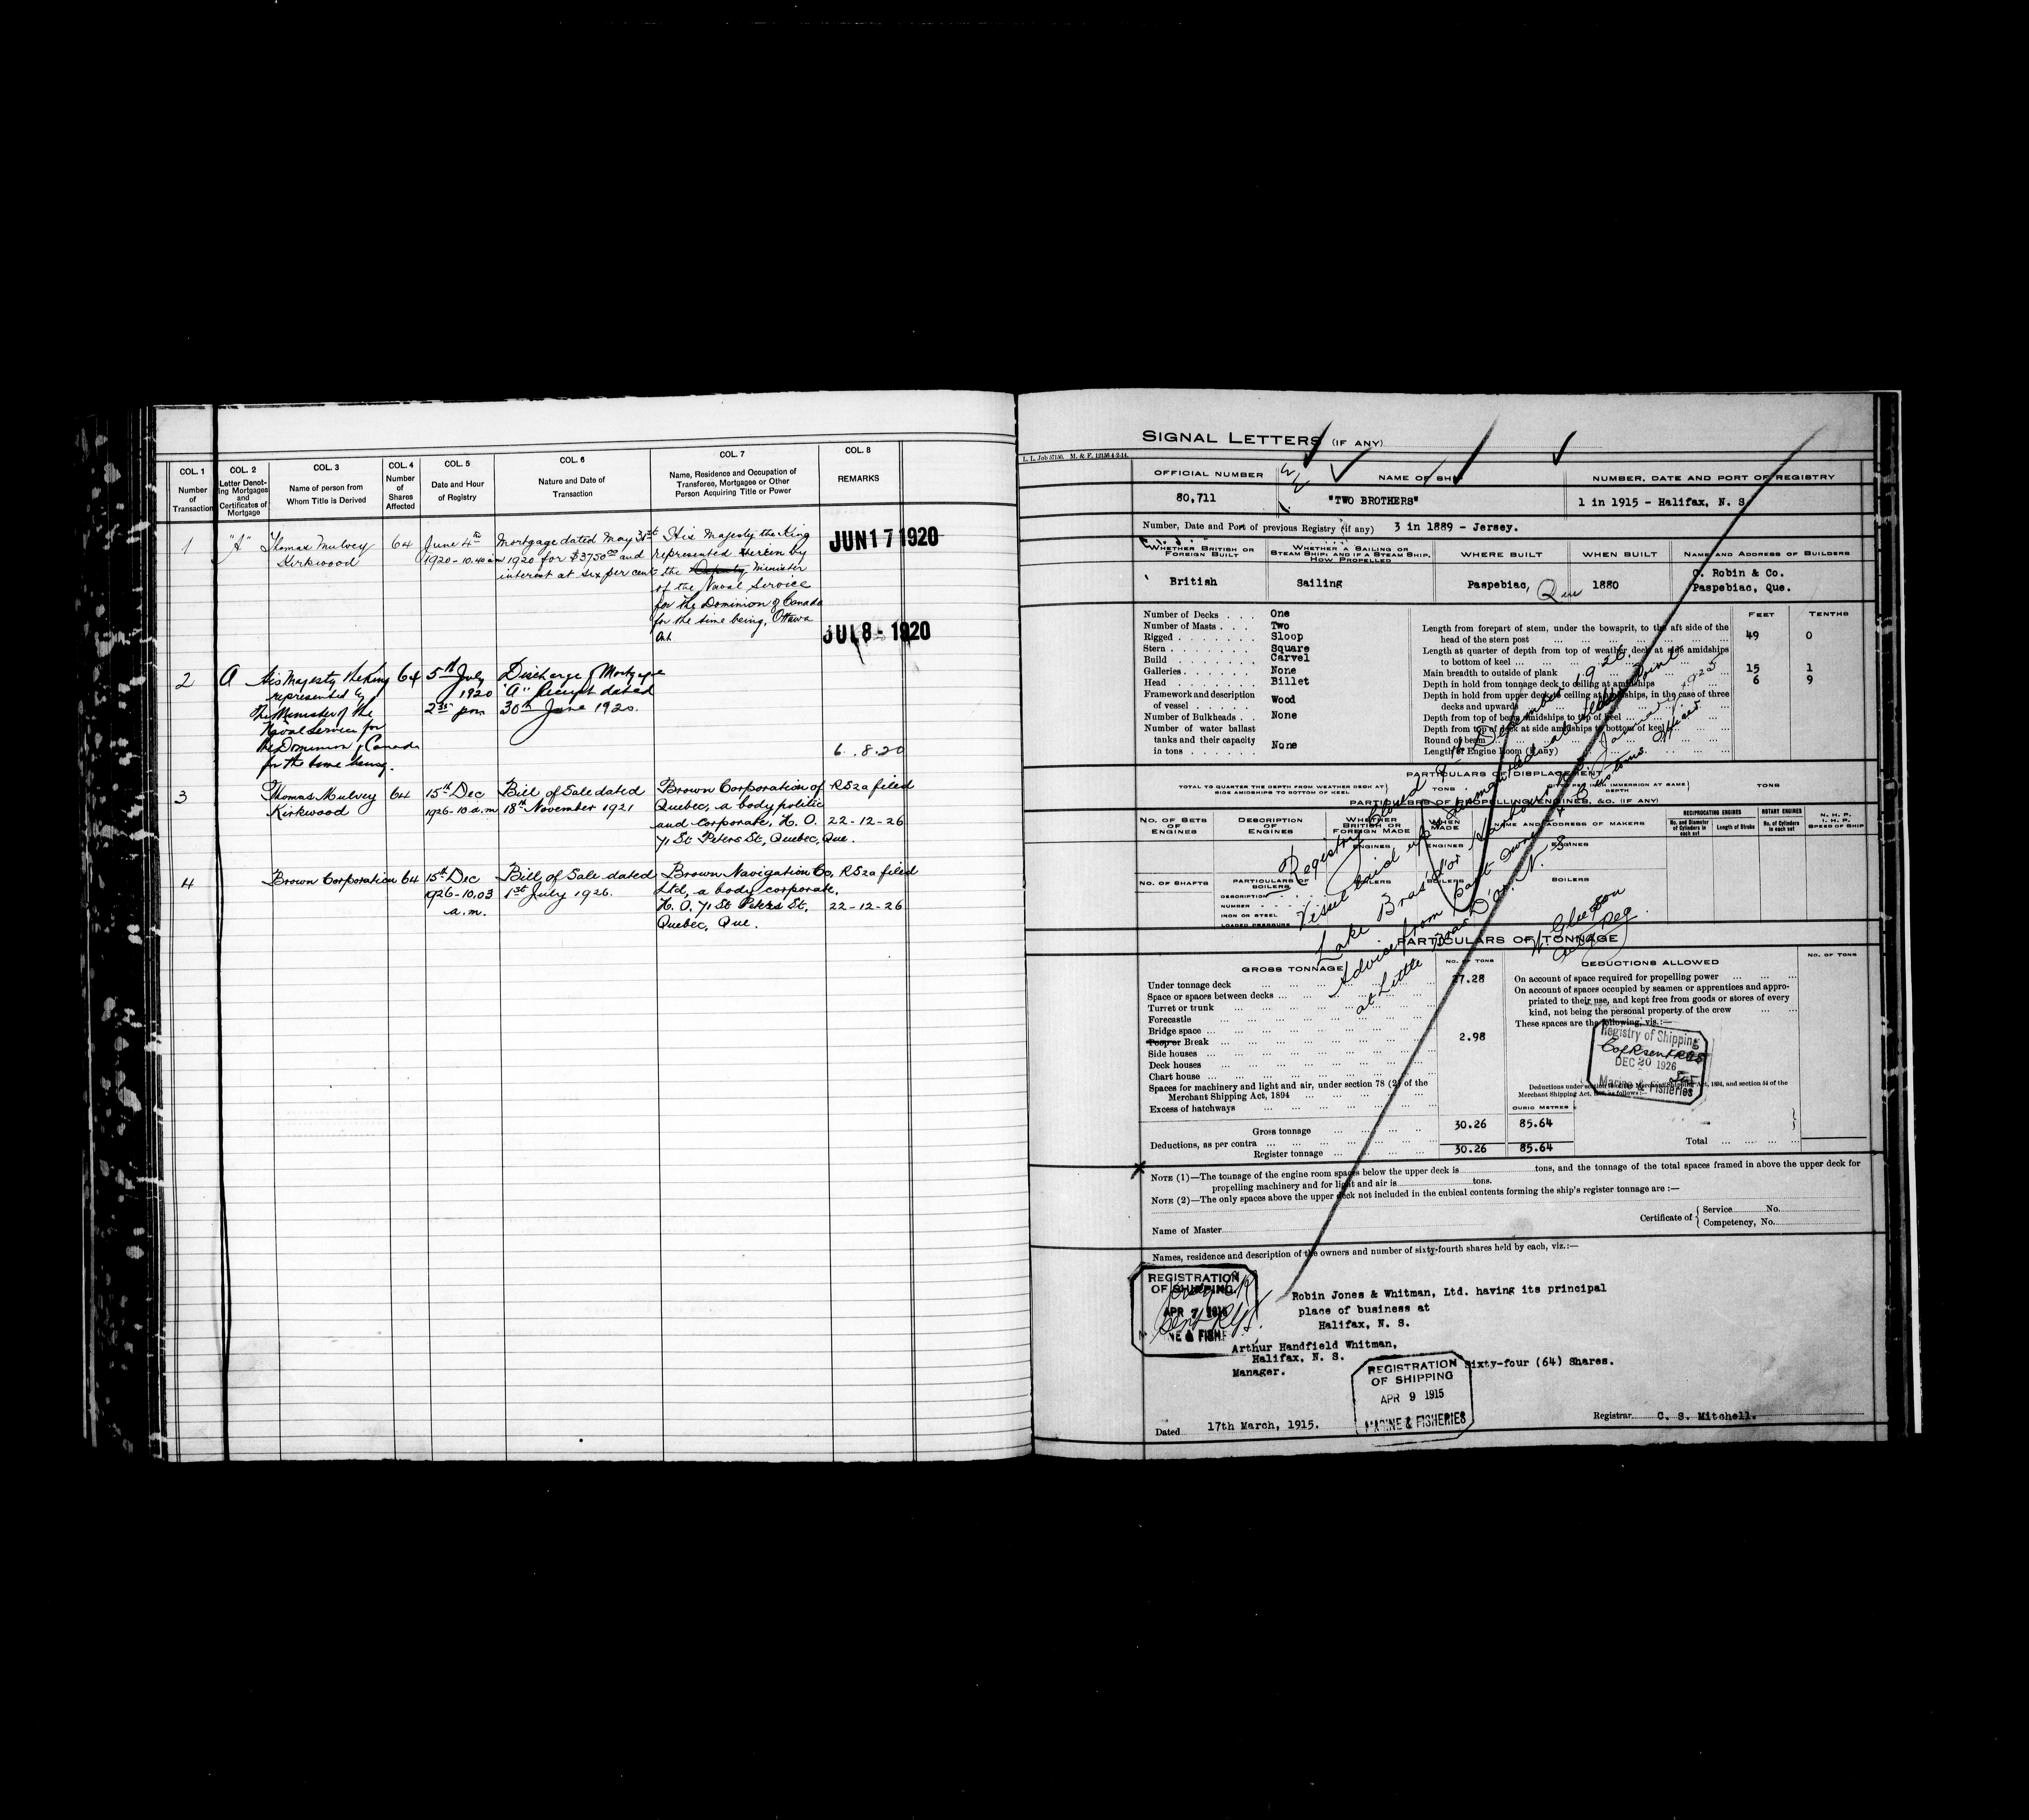 COL. 1
Number
of
Transaction
COL. 2
Letter Denot-
ing Mortgages
and
Certificates of
Mortgage
COL. 3
Name of person from
Whom Title is Derived
COL. 4
Number
of
Shares
Affected
COL. 5
Date and Hour
of Registry
COL. 6
Nature and Date of
Transaction
COL. 7
Name, Residence and Occupation of
Transferee, Mortgagee or Other
Person Acquiring Title or Power
COL. 8
REMARKS
1
"A"
Thomas Mulvey
Kirkwood
64
June 4th
1920 - 10.40 am
Mortgage dated May 31st
1920 for $3750.00 and
interest at six per cent
His Majesty the King
represented herein by
the Deputy Minister
of the Naval Service
for the Dominion of Canada
for the time being, Ottawa
Ont.
JUN 17 1920
JUL 8 - 1920
2
A
His Majesty the King
represented by
The Minister of the
Naval Service for
the Dominion of Canada
for the time being.
64
5th July
1920
2 pm
Discharge of Mortgage
"A" Receipt dated
30th June 1920.
6.8.20
3
Thomas Mulvey
Kirkwood
64
15th Dec
1926-10 a.m
Bill of Sale dated
18th November 1921
Brown Corporation of
Quebec, a body politic
and corporate, H. O.
71 St Peters St, Quebec, Que.
R52a filed
22-12-26
4
Brown Corporation
64
15th Dec
1926-10.03
a.m.
Bill of Sale dated
1st July 1926.
Brown Navigation Co,
Ltd, a body corporate,
H. O. 71 St Peters St,
Quebec, Que.
R52a filed
22-12-26
SIGNAL LETTERS (IF ANY)
L. L. Job 57150. M. & F. 12156 4-2-14.
OFFICIAL NUMBER
80,711
NAME OF SHIP
"TWO BROTHERS"
NUMBER, DATE AND PORT OF REGISTRY
1 in 1915 - Halifax, N. S.
Number, Date and Port of previous Registry (if any) 3 in 1889 - Jersey.
WHETHER BRITISH OR
FOREIGN BUILT
British
WHETHER A SAILING OR
STEAM SHIP; AND IF A STEAM SHIP,
HOW PROPELLED
Sailing
WHERE BUILT
Paspebiac, Que
WHEN BUILT
1880
NAME AND ADDRESS OF BUILDERS
C. Robin & Co.
Paspebiac, Que.
Number of Decks . . . One
Number of Masts . . . Two
Rigged . . . Sloop
Stern . . . Square
Build . . . Carvel
Galleries . . . None
Head . . . Billet
Framework and description
of vessel . . . Wood
Number of Bulkheads . . None
Number of water ballast
tanks and their capacity
in tons . . . None
FEET TENTHS
Length from forepart of stem, under the bowsprit, to the aft side of the
head of the stern post 49 0
Length at quarter of depth from top of weather deck at side amidships
to bottom of keel
Main breadth to outside of plank 15 1
Depth in hold from tonnage deck to ceiling at amidships 6 9
Depth in hold from upper deck to ceiling at amidships, in the case of three
decks and upwards
Depth from top of beam amidships to top of keel
Depth from top of deck at side amidships to bottom of keel
Round of beam
Length of Engine Room (if any)
PARTICULARS OF DISPLACEMENT
TOTAL TO QUARTER THE DEPTH FROM WEATHER DECK AT
SIDE AMIDSHIPS TO BOTTOM OF KEEL
TONS
DITTO PER INCH IMMERSION AT SAME
DEPTH
TONS
PARTICULARS OF PROPELLING ENGINES, &C. (IF ANY)
NO. OF SETS
OF
ENGINES
DESCRIPTION
OF
ENGINES
WHETHER
BRITISH OR
FOREIGN MADE
WHEN
MADE
NAME AND ADDRESS OF MAKERS
RECIPROCATING ENGINES
No. and Diameter
of Cylinders in
each set
Length of Stroke
ROTARY ENGINES
No. of Cylinders
in each set
N. H. P.
I. H. P.
SPEED OF SHIP
ENGINES
ENGINES
ENGINES
NO. OF SHAFTS
PARTICULARS OF
BOILERS
BOILERS
BOILERS
BOILERS
DESCRIPTION
NUMBER
IRON OR STEEL
LOADED PRESSURE
Registry closed December 1926.
Vessel laid up & dismantled at
Lake Bras d'or January 1925
Advice from Capt owner & Customs Officer
at Little Bras D'or, N. S
W. Gleeson
PARTICULARS OF TONNAGE
GROSS TONNAGE
NO. OF TONS
Under tonnage deck 27.28
Space or spaces between decks
Turret or trunk
Forecastle
Bridge space
Poop or Break 2.98
Side houses
Deck houses
Chart house
Spaces for machinery and light and air, under section 78 (2) of the
Merchant Shipping Act, 1894
Excess of hatchways
Gross tonnage 30.26 85.64
Deductions, as per contra
Register tonnage 30.26 85.64
DEDUCTIONS ALLOWED
NO. OF TONS
On account of space required for propelling power
On account of spaces occupied by seamen or apprentices and appro-
priated to their use, and kept free from goods or stores of every
kind, not being the personal property of the crew
These spaces are the following, viz.:—
Registry of Shipping
DEC 20 1926
Marine & Fisheries
CUBIC METRES
Total
NOTE (1)—The tonnage of the engine room spaces below the upper deck is tons, and the tonnage of the total spaces framed in above the upper deck for
propelling machinery and for light and air is tons.
NOTE (2)—The only spaces above the upper deck not included in the cubical contents forming the ship's register tonnage are :—
Name of Master
Certificate of { Service No.
Competency, No.
Names, residence and description of the owners and number of sixty-fourth shares held by each, viz.:—
REGISTRATION
OF SHIPPING
APR 7 1915
Robin Jones & Whitman, Ltd. having its principal
place of business at
Halifax, N. S.
Arthur Handfield Whitman,
Halifax, N. S.
Manager.
Sixty-four (64) Shares.
REGISTRATION
OF SHIPPING
APR 9 1915
MARINE & FISHERIES
Dated 17th March, 1915.
Registrar C. S. Mitchell.